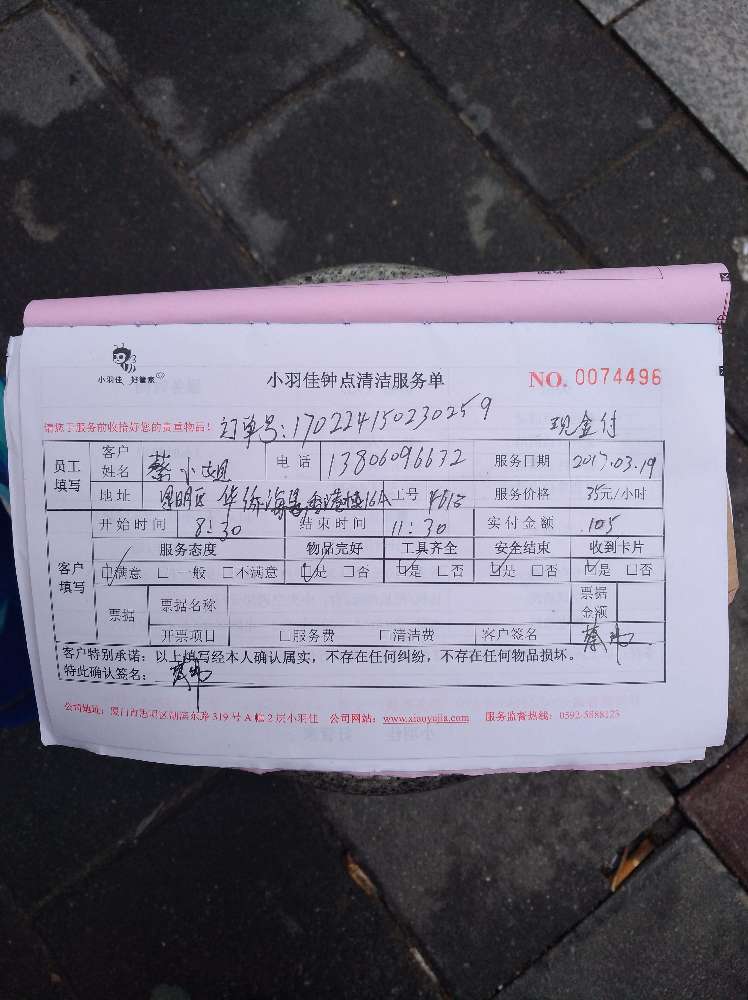 小羽佳 好管家
小羽佳钟点清洁服务单
NO. 0074496
请您于服务前收拾好您的贵重物品!
订单号:170224150230259
现金付
员工填写 客户姓名 蔡小姐 电话 13806096632 服务日期 2017.03.19
地址 华侨海景 16A 工号 服务价格 35元/小时
客户填写 开始时间 8:30 结束时间 11:30 实付金额 105
服务态度 物品完好 工具齐全 安全结束 收到卡片
满意 □一般 □不满意 是 □否 是 □否 是 □否 是 □否
票据 票据名称 票据金额
开票项目 □服务费 □清洁费 客户签名 蔡
客户特别承诺:以上填写经本人确认属实,不存在任何纠纷,不存在任何物品损坏。
特此确认签名: 蔡
公司地址:厦门市思明区湖滨东路319号A幢2层小羽佳 公司网站:www.xiaoyujia.com 服务监督热线:0592-5888123